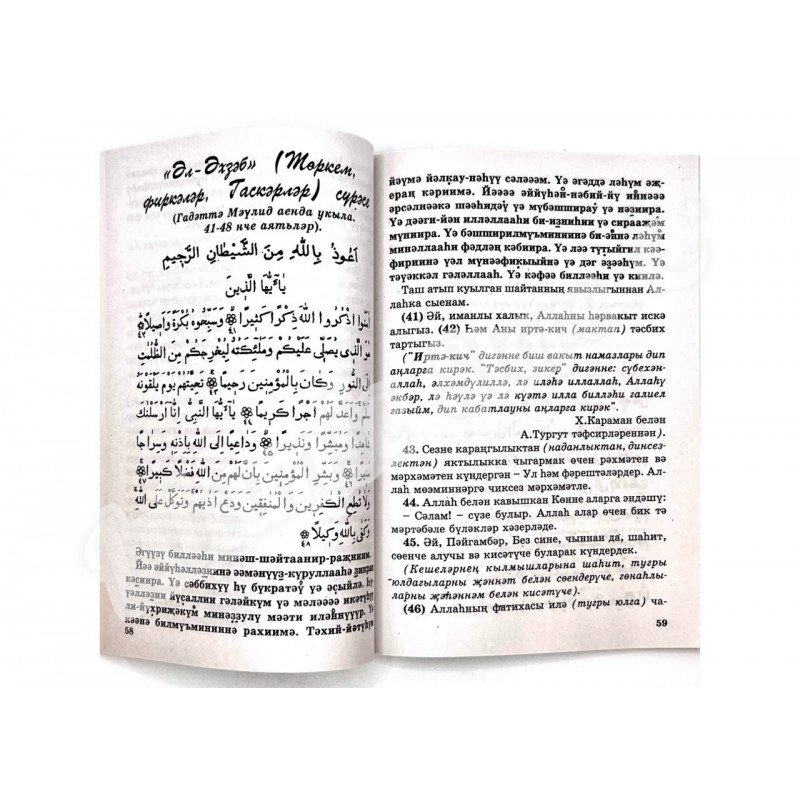 «Әл-Әхҙәб» (Төркем,
фиркәләр, Гаскәрләр) сүрәсе
(Гадәттә Мәүлид аенда укыла.
41-48 нче аятьләр).
اَعُوذُ بِاللّٰهِ مِنَ الشَّيْطَانِ الرَّجِيمِ
يَا اَيُّهَا الَّذِينَ
اٰمَنُوا اذْكُرُوا اللّٰهَ ذِكْرًا كَثِيرًا ﴿٤١﴾ وَسَبِّحُوهُ بُكْرَةً وَاَصِيلًا ﴿٤٢﴾
هُوَ الَّذِى يُصَلِّى عَلَيْكُمْ وَمَلٰئِكَتُهُ لِيُخْرِجَكُمْ مِنَ الظُّلُمَاتِ
اِلَى النُّورِ وَكَانَ بِالْمُؤْمِنِينَ رَحِيمًا ﴿٤٣﴾ تَحِيَّتُهُمْ يَوْمَ يَلْقَوْنَهُ
سَلَامٌ وَاَعَدَّ لَهُمْ اَجْرًا كَرِيمًا ﴿٤٤﴾ يَا اَيُّهَا النَّبِىُّ اِنَّا اَرْسَلْنَاكَ
شَاهِدًا وَمُبَشِّرًا وَنَذِيرًا ﴿٤٥﴾ وَدَاعِيًا اِلَى اللّٰهِ بِاِذْنِهِ وَسِرَاجًا
مُنِيرًا ﴿٤٦﴾ وَبَشِّرِ الْمُؤْمِنِينَ بِاَنَّ لَهُمْ مِنَ اللّٰهِ فَضْلًا كَبِيرًا ﴿٤٧﴾
وَلَا تُطِعِ الْكَافِرِينَ وَالْمُنَافِقِينَ وَدَعْ اَذٰيهُمْ وَتَوَكَّلْ عَلَى اللّٰهِ
وَكَفٰى بِاللّٰهِ وَكِيلًا ﴿٤٨﴾
Әгүүҙү билләәһи минәш-шәйтаанир-раҗииим.
Йәә әййүһәлләҙиинә әәмәнүүҙ-күруллааһә ҙикран
кәҫиира. Үә сәббихүү һү бүкратәү үә әсыйлә. Һү-
үәлләҙии йүсаллии гәләйкүм үә мәләәәә икәтүһүү
ли-йүхриҗәкүм минәҙҙулү мәәти иләйнүүүр. Үә
кәәнә билмүъмининиинә рахиимә. Тәхий-йәтүһүм
58
йәүмә йәлҡау-нәһүү сәләәәм. Үә әгәддә ләһүм әҗ-
ераң кәриимә. Йәәәә әййүһән-нәбий-йү иннәәә
әрсәлнәәкә шәәһидәү үә мүбәшшираү үә нәҙиира.
Үә дәәги-йән илләллааһи би-иҙниһии үә сирааҗәм
мүниира. Үә бәшширилмүъмининиинә би-әннә ләһүм
минәллааһи фәдләң кәбиира. Үә ләә түтыйгил кәә-
фириинә үәл мүнәәфиҡыыйнә үә дәг әҙәәһүм. Үә
тәүәккәл гәләллааһ. Үә кәфәә билләәһи үә киилә.
Таш атып куылган шайтанның явызлыгыннан Ал-
лаһка сыенам.
(41) Әй, иманлы халык, Аллаһны һәрвакыт искә
алыгыз. (42) Һәм Аны иртә-кич (мактап) тәсбих
тартыгыз.
("Иртә-кич" дигәнне биш вакыт намазлары дип
аңларга кирәк. "Тәсбих, зикер" дигәнне: сүбехән-
аллаһ, әлхәмдүлиллә, лә иләһә иллаллаһ, Аллаһу
әкбәр, лә һәүлә үә лә күәтә илла билләһи галиел
газыйм, дип кабатлауны аңларга кирәк".
Х.Караман белән
А.Тургут тәфсирләреннән).
43. Сезне караңгылыктан (наданлыктан, динсез-
лектән) яктылыкка чыгармак өчен рәхмәтен вә
мәрхәмәтен күндергән – Ул һәм фәрештәләрдер. Ал-
лаһ мөэминнәргә чиксез мәрхәмәтле.
44. Аллаһ белән кавышкан Көнне аларга эндәшү:
– Сәлам! – сүзе булыр. Аллаһ алар өчен бик тә
мәртәбәле бүләкләр хәзерләде.
45. Әй, Пәйгамбәр, Без сине, чыннан да, шаһит,
сөенче алучы вә кисәтүче буларак күндердек.
(Кешеләрнең кылмышларына шаһит, тугры
юлдагыларны җәннәт белән сөендерүче, гөнаһлы-
ларны җәһәннәм белән кисәтүче).
(46) Аллаһның фатихасы илә (тугры юлга) ча-
59